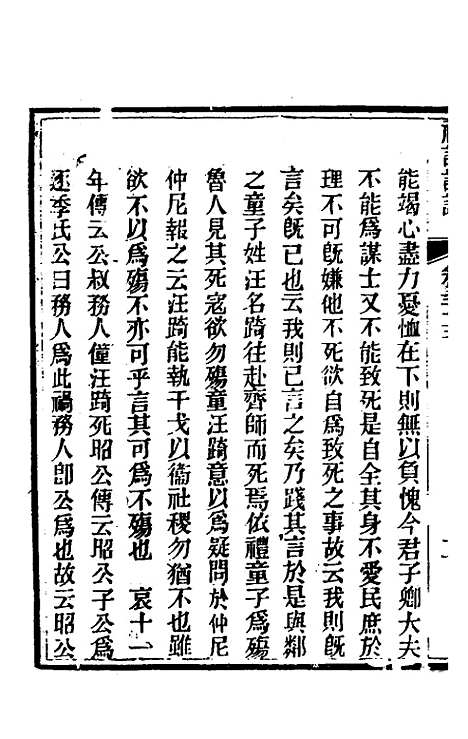 能竭心盡力憂恤在下則無以負愧今君子卿大夫
不能爲謀士又不能致死是自全其身不愛民庶於
理不可旣嫌他不死欲自爲致死之事故云我則旣
言矣旣已也云我則已言之矣乃踐其言於是與鄰
之童子姓汪名踦往赴齊師而死焉依禮童子爲殤
魯人見其死寇欲勿殤童汪踦意以爲疑問於仲尼
仲尼報之云汪踦能執干戈以衞社稷勿猶不也雖
欲不以爲殤不亦可乎言其可爲不殤也　哀十一
年傳云公叔務人僮汪踦死昭公傳云昭公子公爲
逐季氏公曰務人爲此禍務人卽公爲也故云昭公